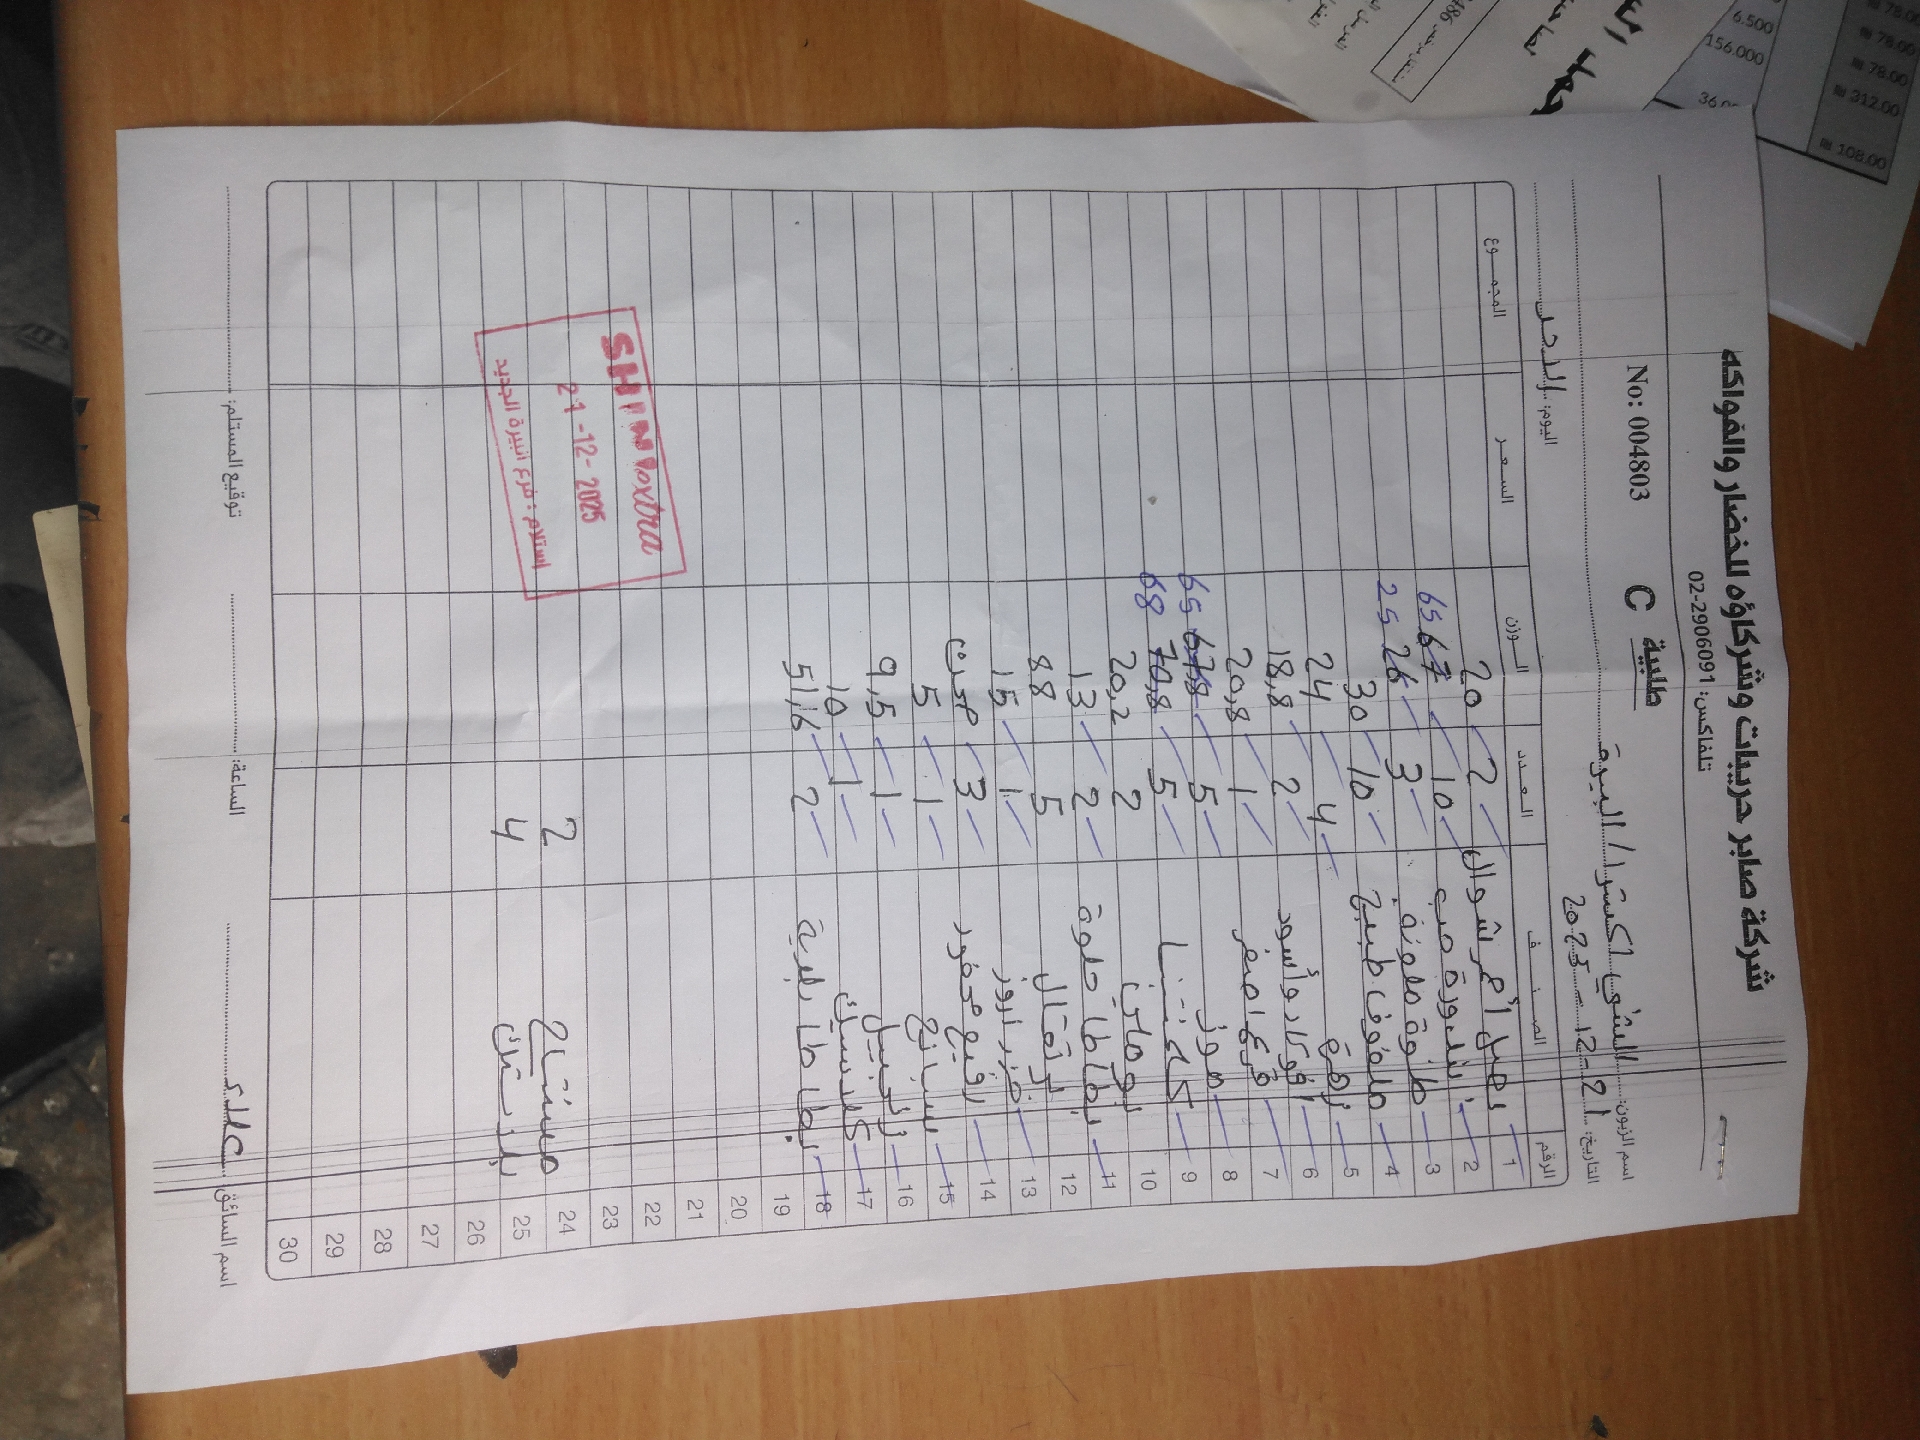 شركة صابر حريبات وشركاؤه للخضار والفواكه
تلفاكس: 02-2906091
طلبية
No: 004803 C
اسم الزبون: الشني اكسترا / البيرة
التاريخ: 21-12-2025 اليوم: الاحد
الرقم الصنف العدد الوزن السعر المجموع
1 بصل أحمر شوال 2 20
2 بندورة حب 10 67 65
3 حلوة ملونة 3 26 25
4 ملفوف طبيخ 10 30
5 زهرة 4 24
6 افوكادو أسود 2 18,8
7 قرع اصفر 1 20,8
8 موز 5 67,8 65
9 كلمنتينا 5 70,8 68
10 بوملي 2 20,2
11 بطاطا حلوة 2 13
12 برتقال 5 88
13 جزر اروز 1 15
14 3
15 سبانخ 1 5
16 زنجبيل 1 9,5
17 1 10
18 بطاطا بلدية 2 51,6
19
20
21
22
23
24 مشتاح 2
25 بلاستك 4
26
27
28
29
30
SHINI extra
21-12-2025
استلام : فرع البيرة الجديد
اسم السائق: علاء الساعة: توقيع المستلم:
6.500
156.000
₪ 78.00
₪ 78.00
₪ 312.00
₪ 108.00